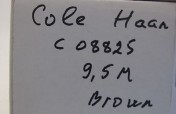 Cole Haan
C 08825
9,5 M
Brown